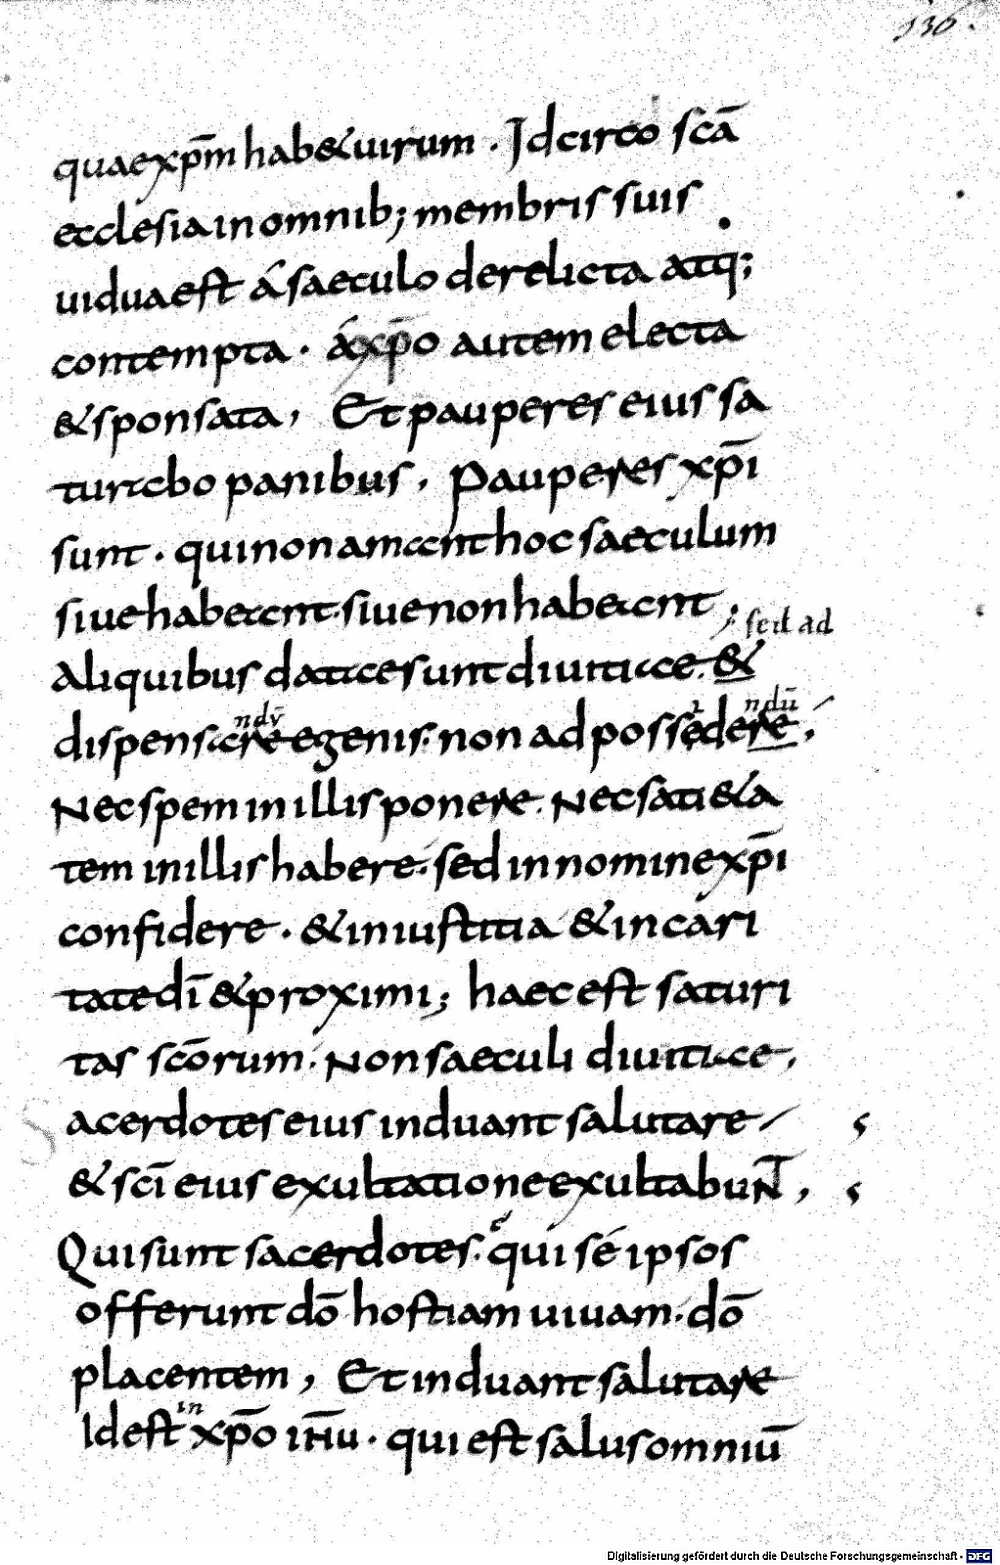 136.
quae xp̄m hab& uirum . Idcirco sc̄a
ecclesia in omnib; membris suis
uidua est á saeculo derelicta atq;
contempta . á xp̄o autem electa
& sponsata, Et pauperes eius sa
turabo panibus, Pauperes xp̄i
sunt . qui non amant hoc saeculum
siue habeant. siue non habeant,
sed ad
Aliquibus datae sunt diuitiae. &
ndū ı ndū
dispensare egenis. non ad possedere,
Nec spem in illis ponere. Nec sati&a
tem in illis habere. sed in nomine xp̄i
confidere . & in iustitia & in cari
tate dī & proximi; haec est saturi
tas scōrum. Non saeculi diuitiae,
acerdotes eius induant salutare
& scī eius exultatione exultabunT,
Qui sunt sacerdotes. qui sé ipsos
offerunt dō hostiam uiuam. dō
placentem, Et induant salutare
in
Id est xp̄o ıħu . qui est salus omniū
Digitalisierung gefördert durch die Deutsche Forschungsgemeinschaft - DFG